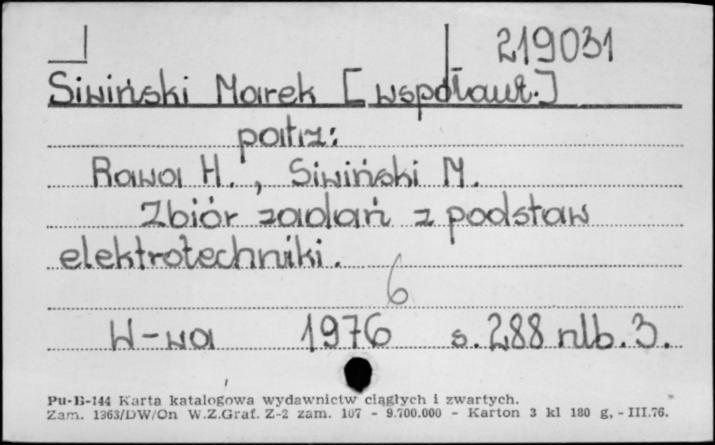 219031
Siwiński Marek [współaut.]
patrz:
Rawa H., Siwiński M.
Zbiór zadań z podstaw
elektrotechniki.
6
W-wa 1976 s. 288 nlb. 3.
Pu-B-144 Karta katalogowa wydawnictw ciągłych i zwartych.
Zam. 1363/DW/On W.Z.Graf. Z-2 zam. 107 - 9.700.000 - Karton 3 kl 180 g. - III.76.